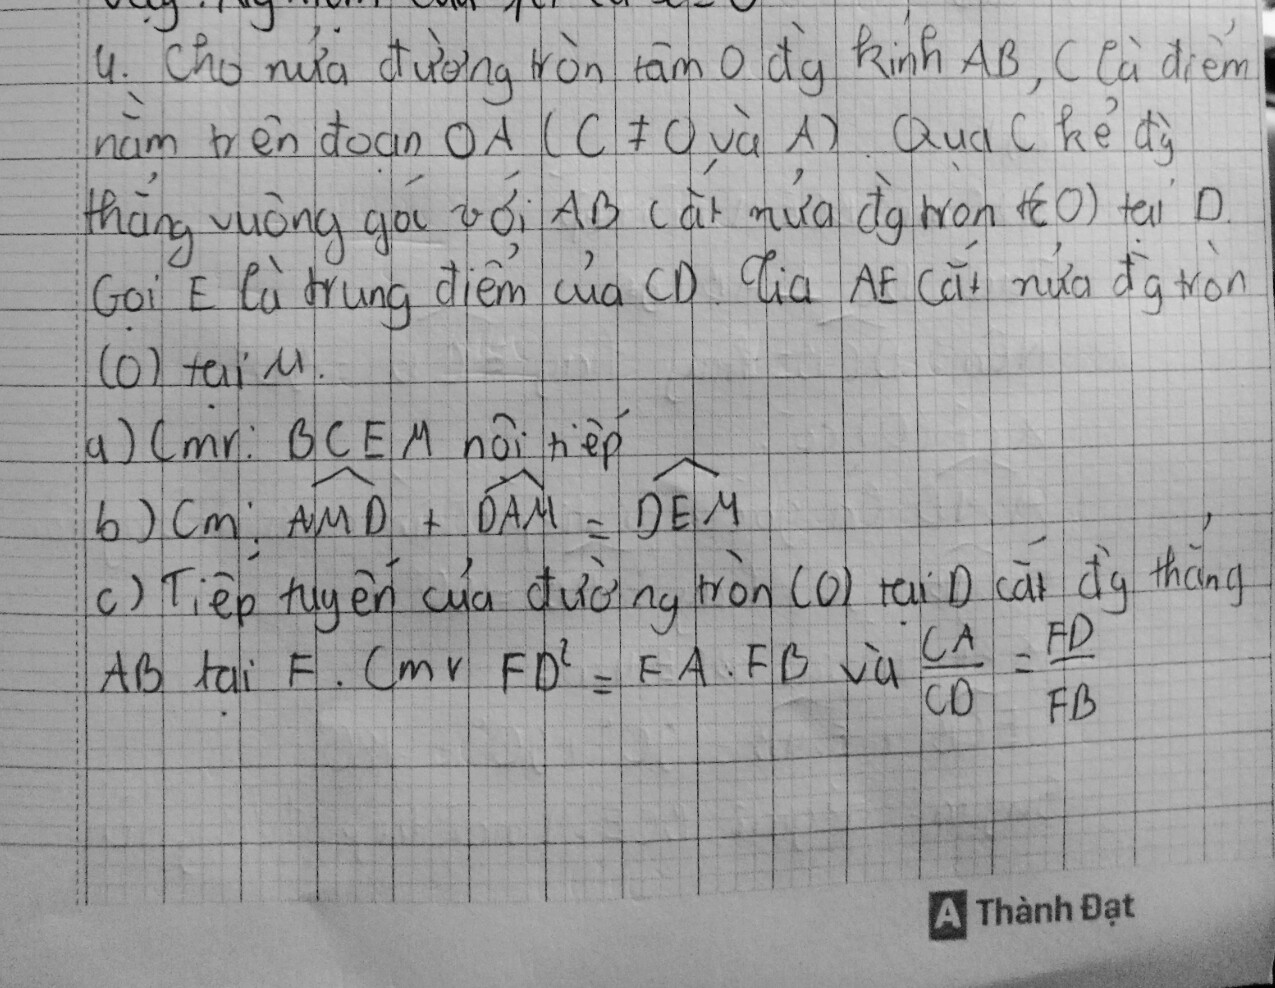 4. Cho nửa đường tròn tâm O đg kính AB, C là điểm
nằm trên đoạn OA (C ≠ O và A). Qua C kẻ đg
thẳng vuông góc với AB cắt nửa đg tròn (O) tại D.
Gọi E là trung điểm của CD. Tia AE cắt nửa đg tròn
(O) tại M.
a) Cmr: BCEM nội tiếp
b) Cm: \widehat{AMD} + \widehat{DAM} = \widehat{DEM}
c) Tiếp tuyến của đường tròn (O) tại D cắt đg thẳng
AB tại F. Cmr FD² = FA.FB và CA/CD = FD/FB
A Thành Đạt